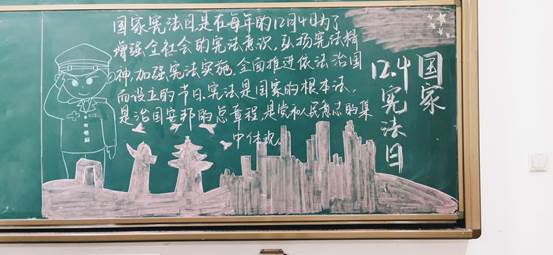 国家宪法日是在每年的12月4日为了
增强全社会的宪法意识,弘扬宪法精
神,加强宪法实施,全面推进依法治国
而设立的节日.宪法是国家的根本法,
是治国安邦的总章程,是党和人民意志的集
中体现.
国家
12.4宪法日